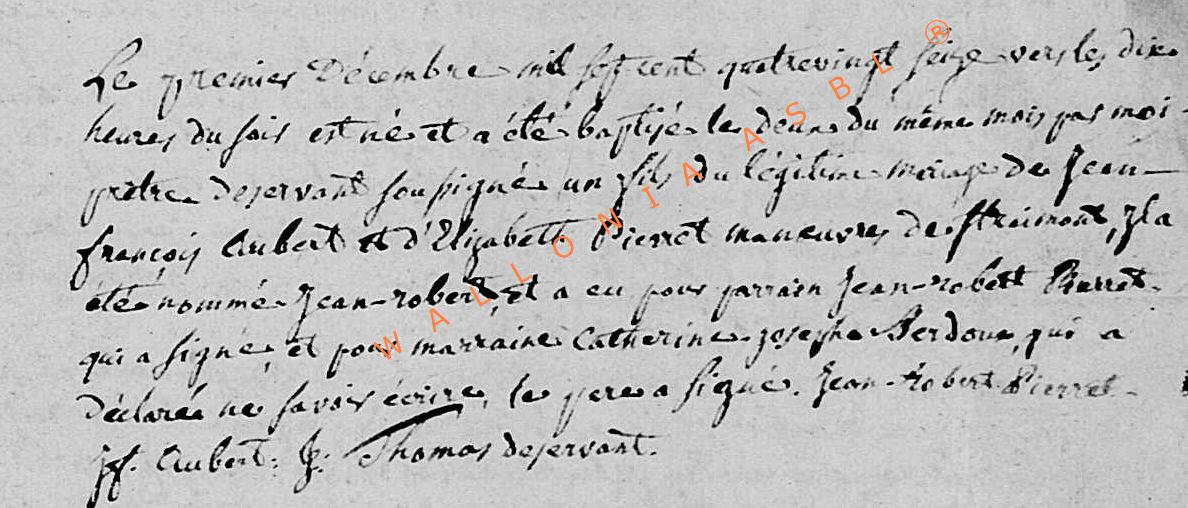 Le premier Décembre mil sept cent quatrevingt seize vers les dix
heures du soir est né et a été baptisé le deux du même mois par moi
prêtre deservant soussigné un fils du légitime mariage de Jean
françois Aubert et d'Elizabeth Pierret manœuvres de straimont, Il a
été nommé Jean-robert, et a eu pour parrain Jean-robert Pierret
qui a signé, et pour marraine Catherine josephe Perdoux, qui a
déclaré ne savoir écrire, le pere a signé. Jean-Robert Pierret
jf. Aubert. J. Thomas deservant.
WALLONIA ASBL ®